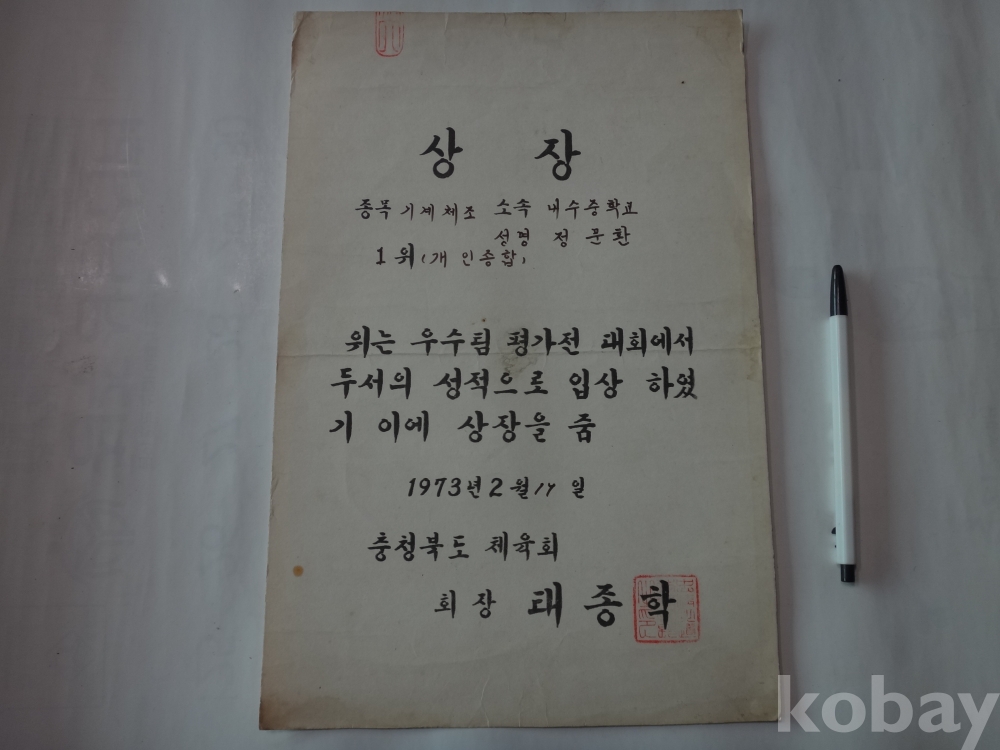 상 장
종목 기계체조 소속 내수중학교
성명 정문환
1위 (개인종합)
위는 우수팀 평가전 대회에서
두서의 성적으로 입상 하였
기 이에 상장을 줌
1973년 2월 17 일
충청북도 체육회
회장 태종학
kobay